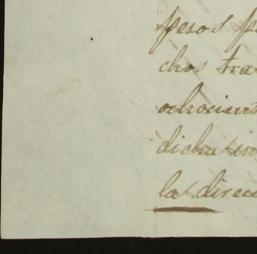 pesos p
chos tra
ochocient
dicha im
la direc